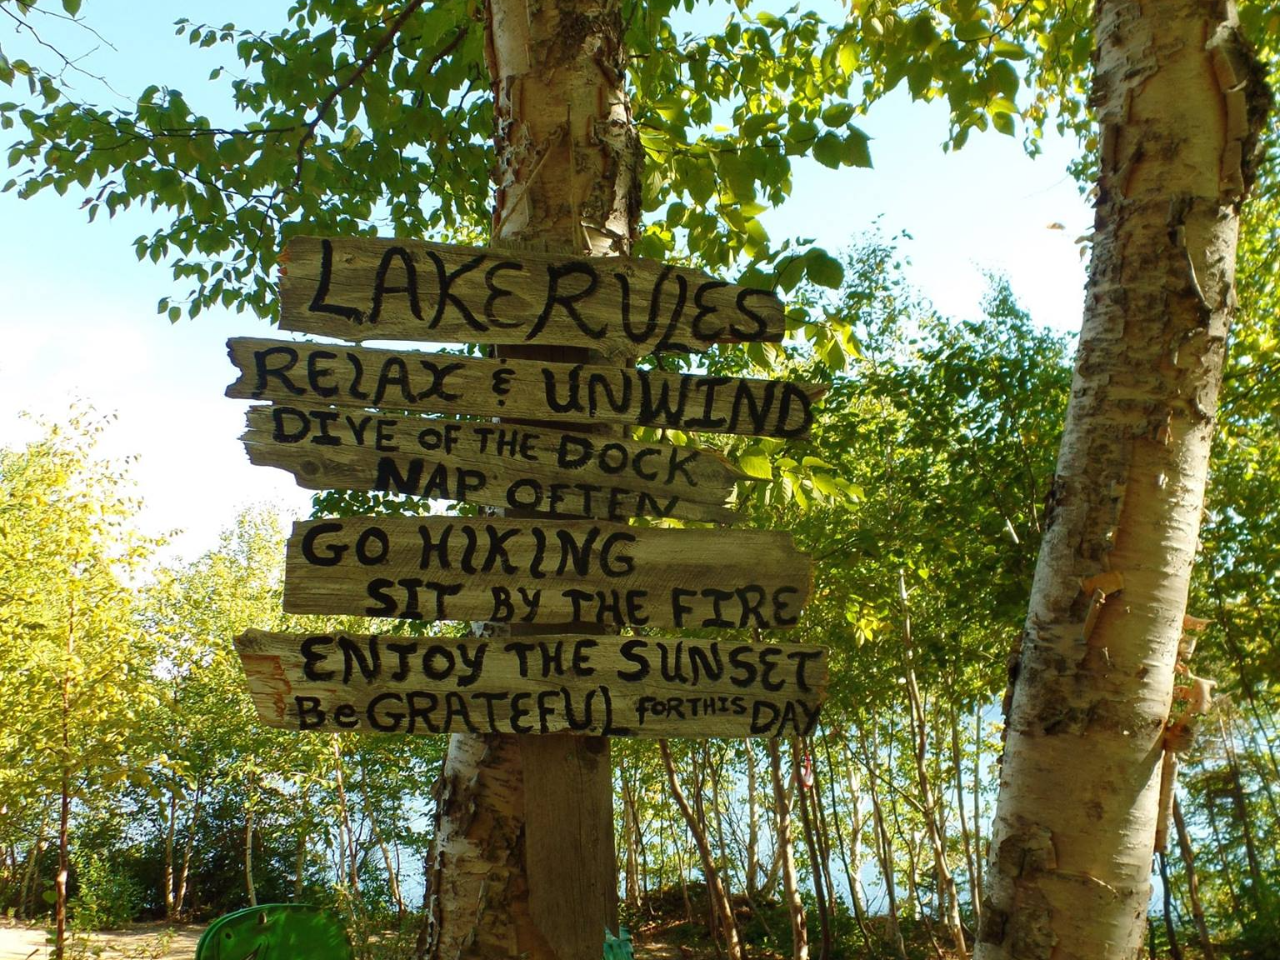 LAKE RULES
RELAX & UNWIND
DIVE OF THE DOCK
NAP OFTEN
GO HIKING
SIT BY THE FIRE
ENJOY THE SUNSET
Be GRATEFUL FOR THIS DAY